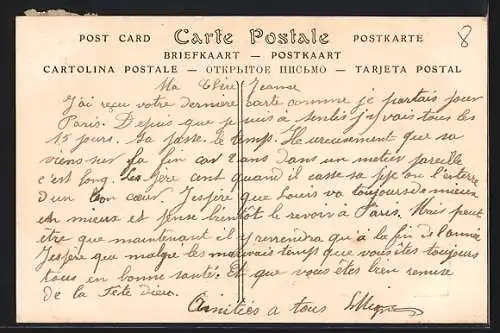 POST CARD Carte Postale POSTKARTE 8
BRIEFKAART — POSTKAART
CARTOLINA POSTALE — ОТКРЫТОЕ ПИСЬМО — TARJETA POSTAL
Ma Chère Jeanne
J'ai reçu votre dernière carte comme je partais pour
Paris. Depuis que je suis à Senlis j'y vais tous les
15 jours. Sa passe le temps. Heureusement que sa
viens sur sa fin car 2 ans dans un metier pareille
c'est long. Le cent quand il casse sa pipe on l'enterre
d'un bon cœur. J'espère que Louis va toujours de mieux
en mieux et pense bientôt le revoir à Paris. Mais peut
être que maintenant il y reviendra qu'à la fin de l'année
J'espère que malgre les mauvais temps que vous êtes toujours
tous en bonne santé. Et que vous êtes bien remise
de la Fête dieu.
Amitiées a tous